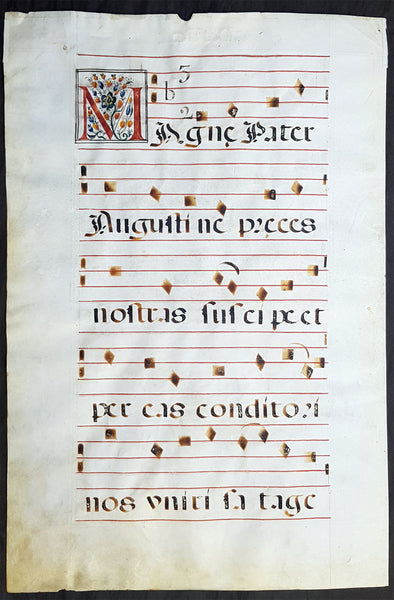 3
2
MAgnę Pater
Augustine preces
nostras suscipe et
per eas conditori
nos vniri satage